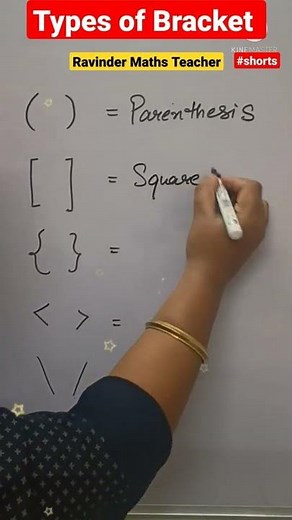 Types of Bracket
KINEMASTER
Ravinder Maths Teacher
#shorts
( ) = Parenthesis
[ ] = Square
{ } =
< > =
\ /